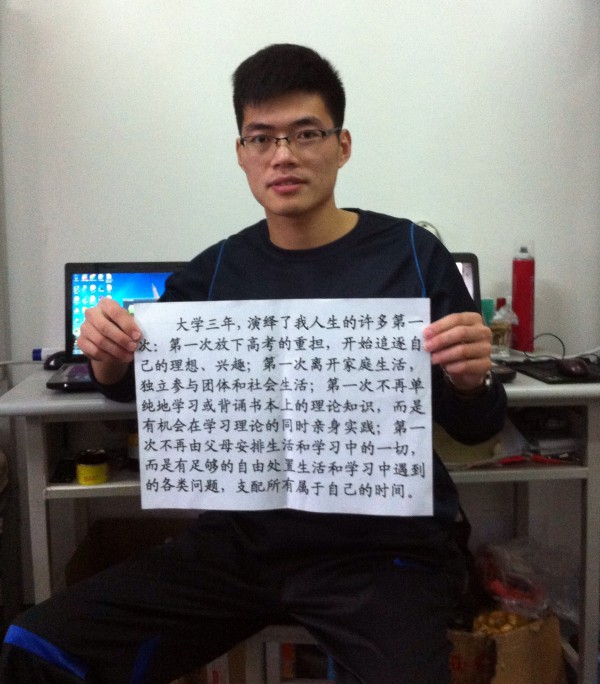 大学三年，演绎了我人生的许多第一
次：第一次放下高考的重担，开始追逐自
己的理想、兴趣；第一次离开家庭生活，
独立参与团体和社会生活；第一次不再单
纯地学习或背诵书本上的理论知识，而是
有机会在学习理论的同时亲身实践；第一
次不再由父母安排生活和学习中的一切，
而是有足够的自由处置生活和学习中遇到
的各类问题，支配所有属于自己的时间。